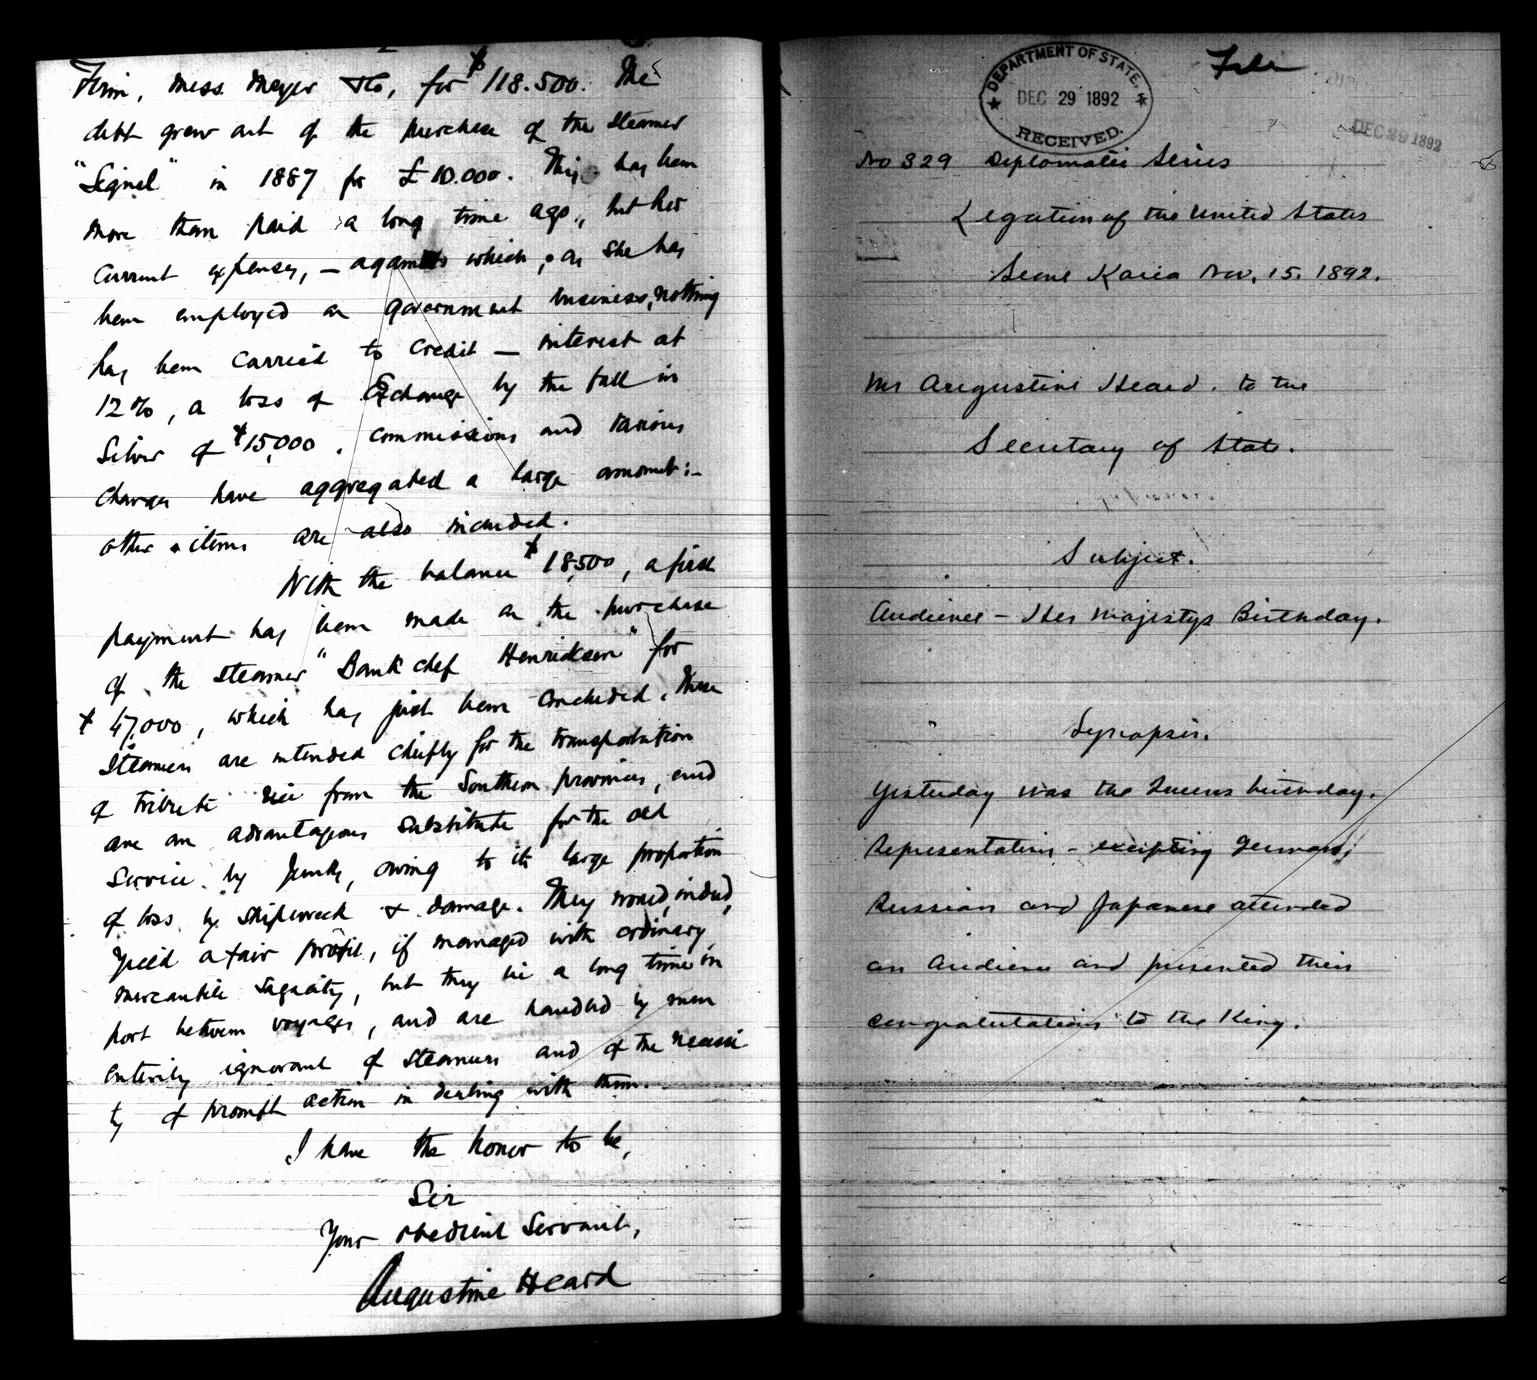 Firm, Mess Meyer & Co, for $118.500. The
debt grew out of the purchase of the Steamer
"Signal" in 1887 for £10.000. This has been
more than paid a long time ago, but her
current expenses, – against which, as she has
been employed on government business, nothing
has been carried to credit – interest at
12%, a loss of Exchange by the fall in
Silver of $15,000, commissions and various
charges have aggregated a large amount:-
other items are also included.
With the balance $18,500, a first
payment has been made on the purchase
of the steamer "Bankchef Henriksen" for
$47,000, which has just been concluded. These
Steamers are intended chiefly for the transportation
of tribute rice from the Southern provinces, and
are an advantageous substitute for the old
Service by Junks, owing to its large proportion
of loss by shipwreck & damage. They would, indeed,
yield a fair profit, if managed with ordinary
mercantile sagacity, but they lie a long time in
port between voyages, and are handled by men
entirely ignorant of steamers and of the necessi
ty of prompt action in dealing with them.
I have the honor to be,
Sir
Your obedient Servant,
Augustine Heard
DEPARTMENT OF STATE,
DEC 29 1892
RECEIVED.
File
DEC 29 1892
No 329 Diplomatic Series
Legation of the United States
Seoul Korea Nov. 15. 1892.
Mr Augustine Heard. to the
Secretary of State.
Subject.
Audience – Her Majestys Birthday.
Synopsis.
Yesterday was the Queens birthday.
Representatives – excepting German,
Russian and Japanese attended
an Audience and presented their
congratulations to the King.